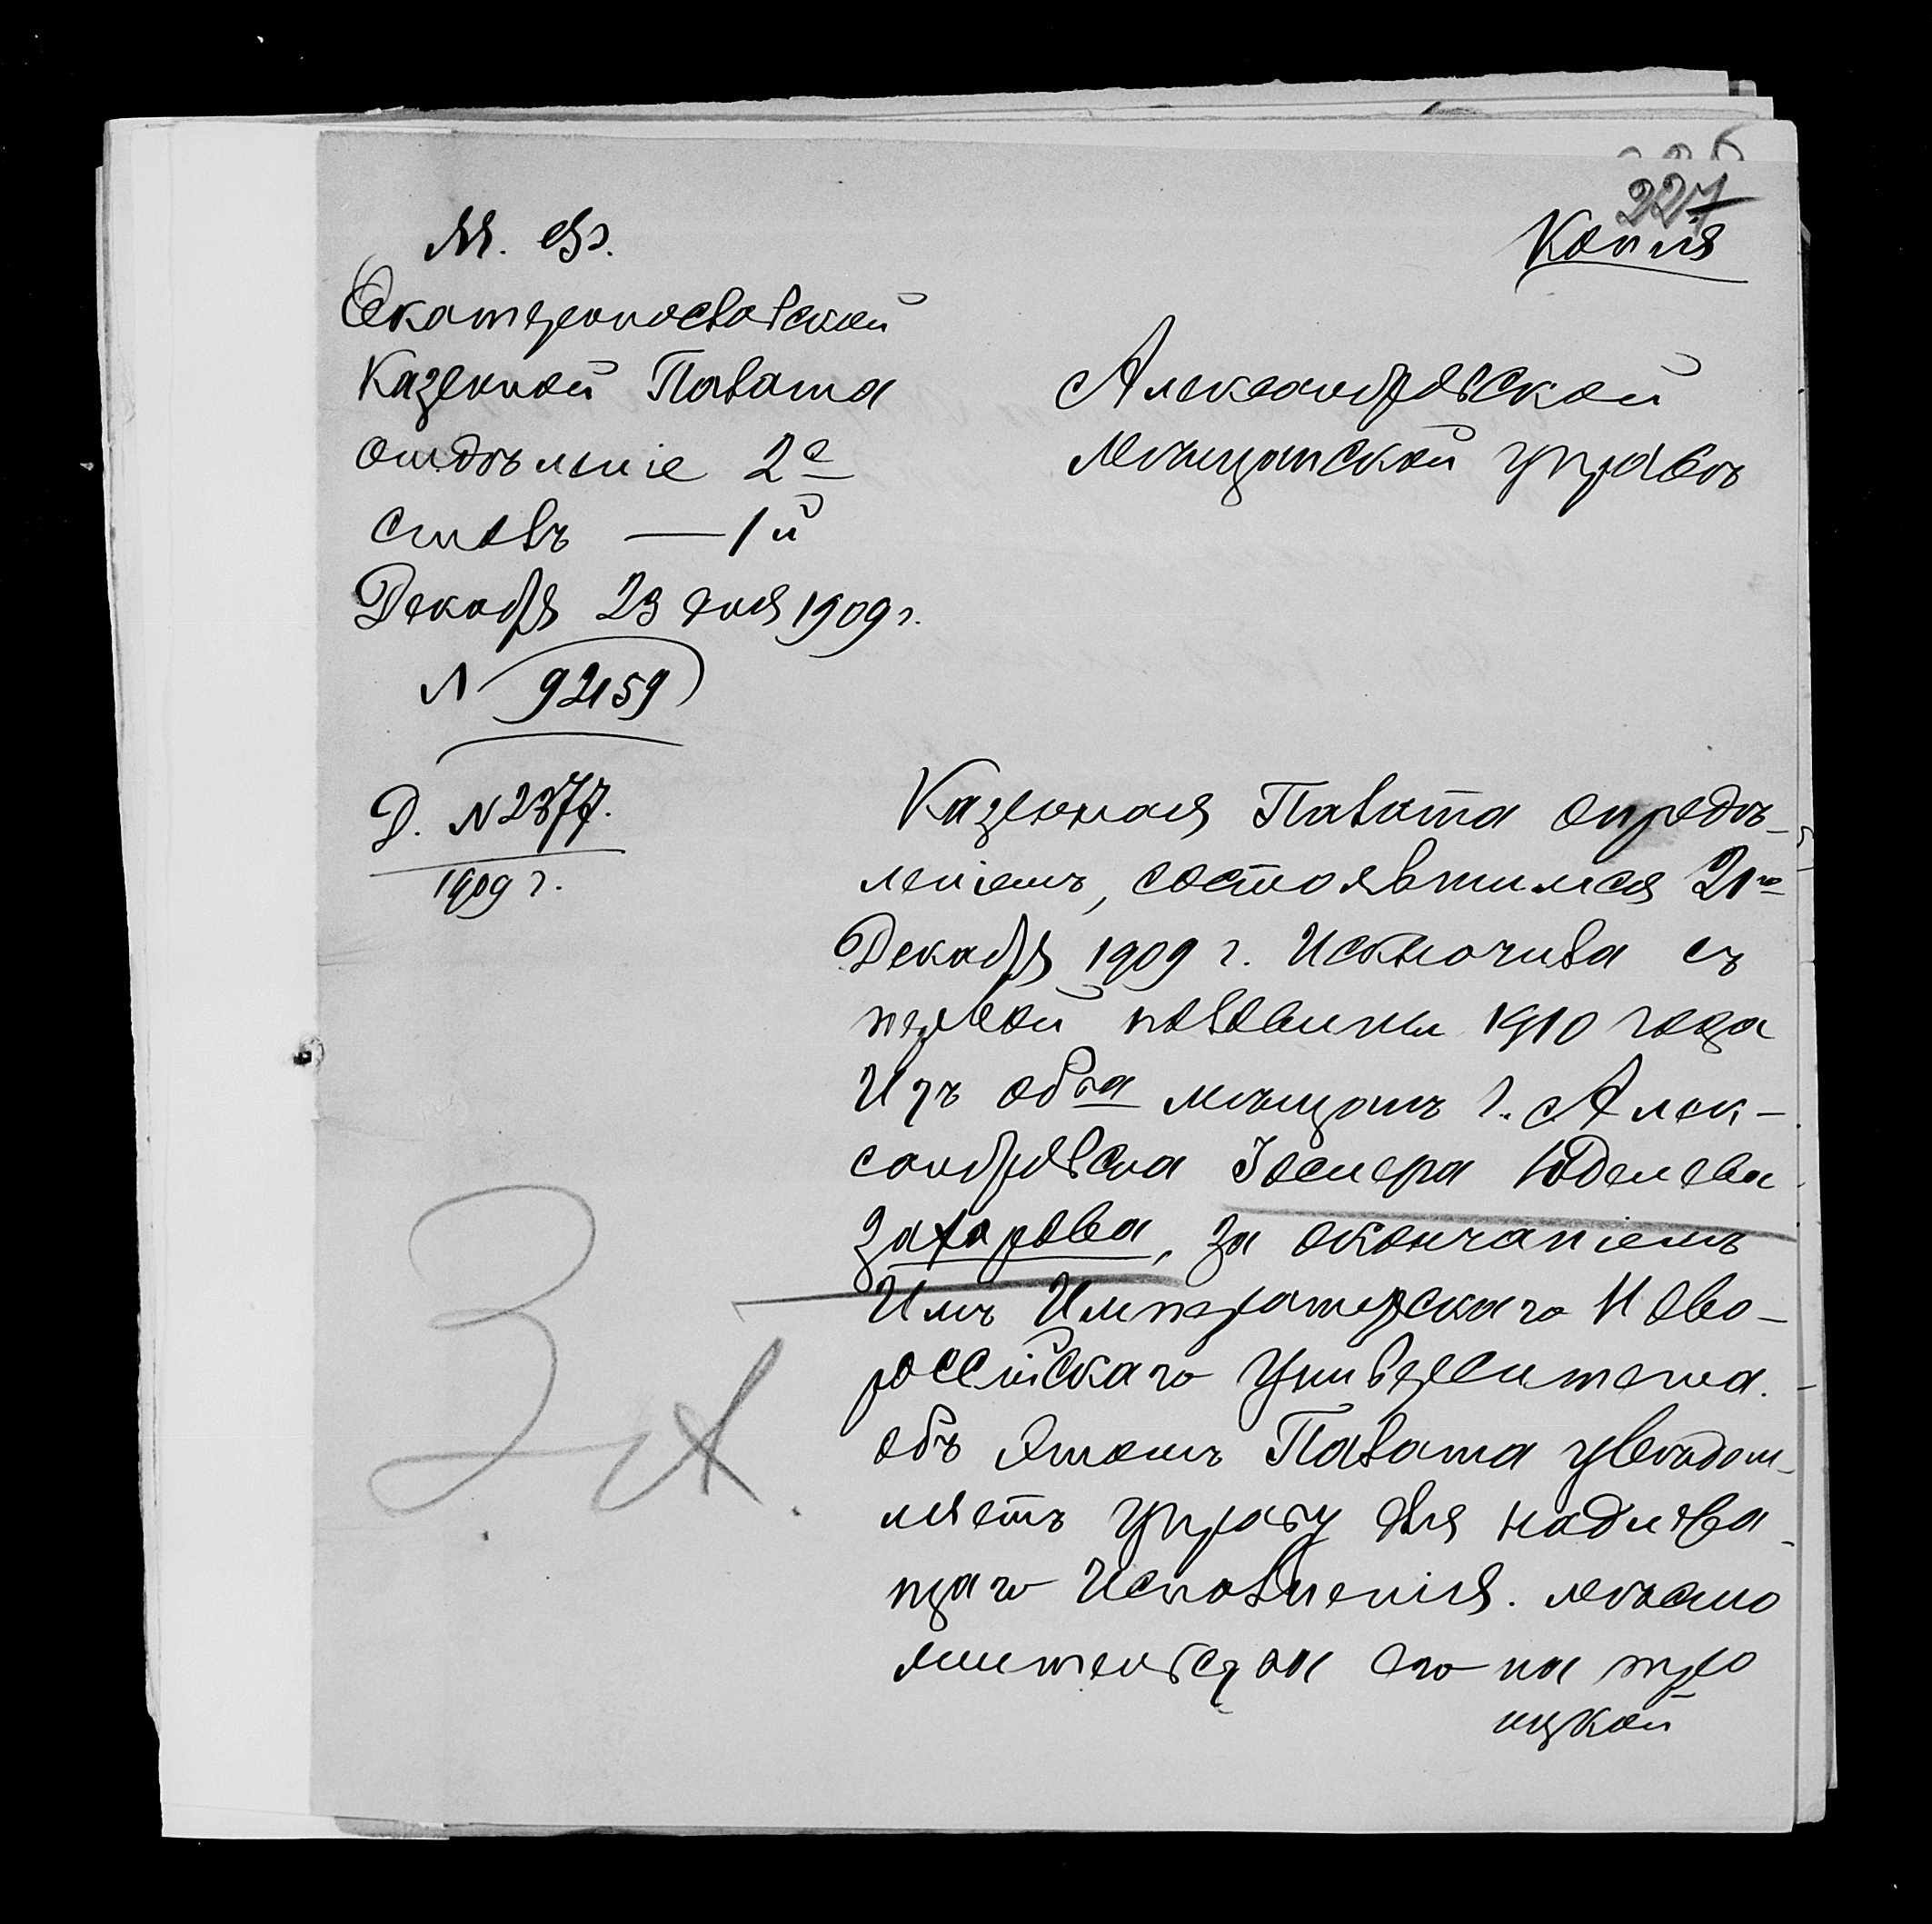 226
227
Копія
М. Ф.
Екатеринославской
Казенной Палата
отдѣленіе 2е
столъ — 1й
Декабря 23 дня 1909 г.
N 92159
Д. N 2377.
1909 г.
Александровской
Мѣщанской управѣ
Казенная Палата опредѣ-
леніемъ, состоявшимся 21го
Декабря 1909 г. Исключила съ
первой половины 1910 года
Изъ обва мѣщанъ г. Алек-
сандровска Юделева
Захарова, за окончаніемъ
Имъ Императорскаго Ново-
россійскаго Университета.
объ этомъ Палата увѣдом-
ляетъ управу для надлежа-
щаго Исполненія. мѣсто
жительства его на тро
ицкой
З А.